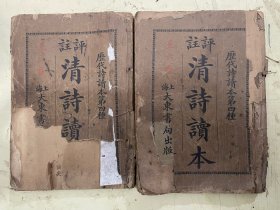 評註
清詩讀
歷代詩讀本第四種
上海大東書
評註
清詩讀本
歷代詩讀本第四種
上海大東書局出版